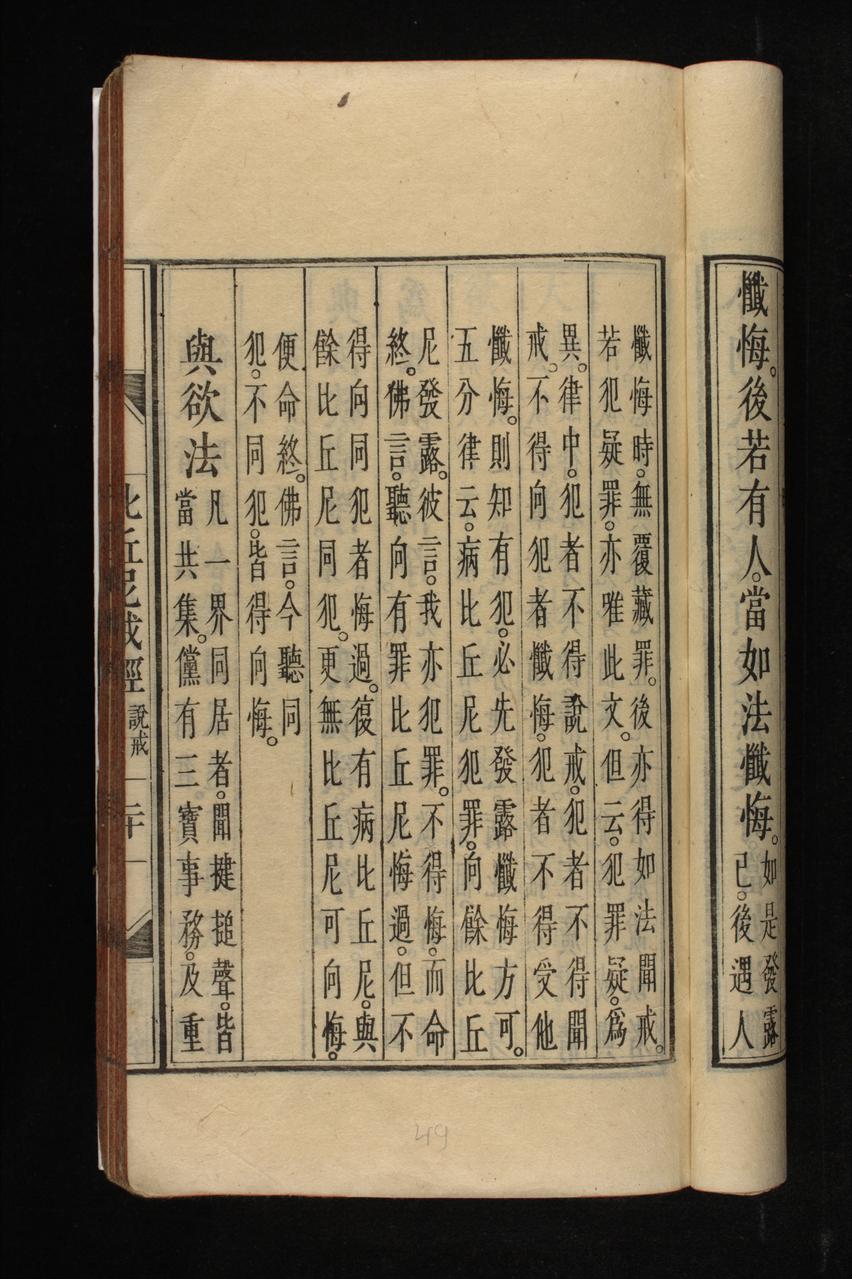 懺悔。後若有人。當如法懺悔。如是發露
已。後遇人
懺悔時。無覆藏罪。後亦得如法聞戒。
若犯疑罪。亦唯此文。但云。犯罪疑。爲
異。律中。犯者不得說戒。犯者不得聞
戒。不得向犯者懺悔。犯者不得受他
懺悔。則知有犯。必先發露懺悔方可。
五分律云。病比丘尼犯罪。向餘比丘
尼發露。彼言。我亦犯罪。不得悔。而命
終。佛言。聽向有罪比丘尼悔過。但不
得向同犯者悔過。復有病比丘尼。與
餘比丘尼同犯。更無比丘尼可向悔。
便命終。佛言。今聽同
犯。不同犯。皆得向悔。
與欲法凡一界同居者。聞揵搥聲。皆
當共集。儻有三寶事務。及重
比丘尼戒經 說戒 二十
49